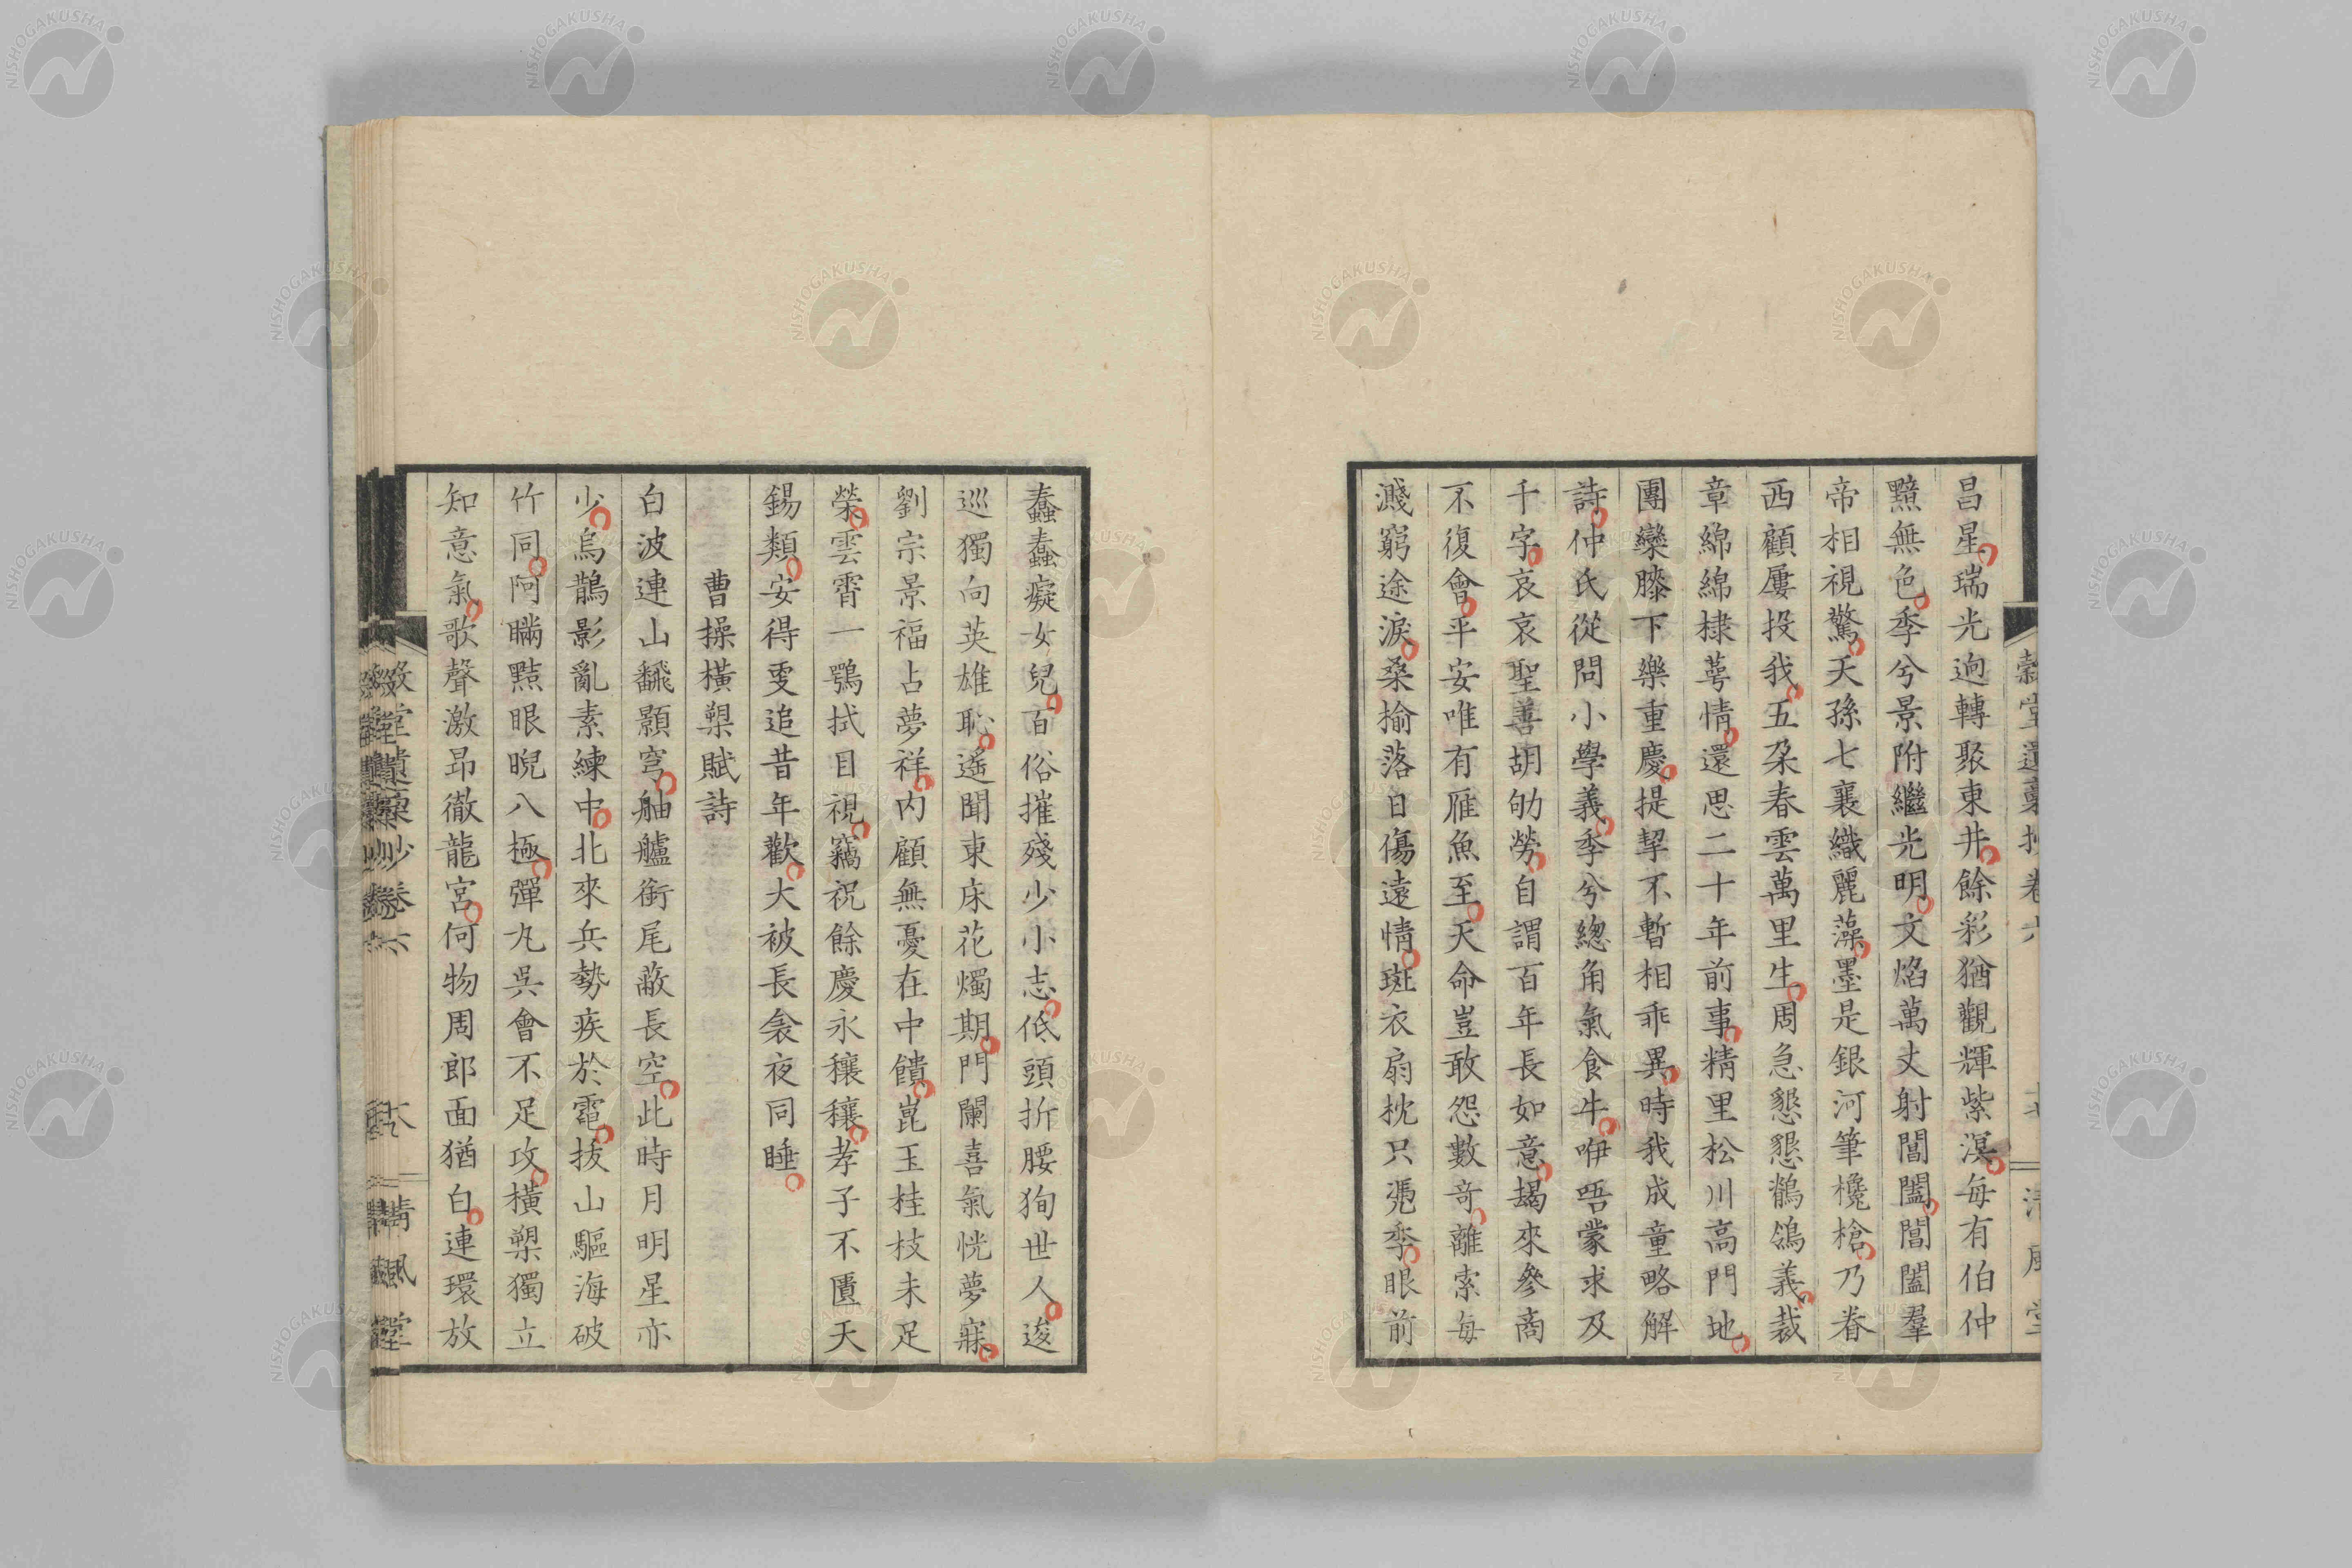 昌星瑞光逈轉聚東井餘彩猶觀輝紫溟每有伯仲
黯無色季兮景附繼光明文焰萬丈射閶闔閶闔羣
帝相視驚天孫七襄織麗藻墨是銀河筆欃槍乃眷
西顧屢投我五朶春雲萬里生周急懇懇鶺鴒義裁
章綿綿棣萼情還思二十年前事精里松川高門地
團欒膝下樂重慶提挈不暫相乖異時我成童略解
詩仲氏從問小學義季兮總角氣食牛咿唔蒙求及
千字哀哀聖善胡劬勞自謂百年長如意朅來參商
不復會平安唯有雁魚至天命豈敢怨數奇離索每
濺窮途淚桑揄落日傷遠情斑衣扇枕只凴季眼前
蠢蠢癡女兒百俗摧殘少小志低頭折腰狥世人逡
巡獨向英雄恥遙聞東床花燭期門闌喜氣恍夢寐
劉宗景福占夢祥內顧無憂在中饋崑玉桂枝未足
榮雲霄一鶚拭目視竊祝餘慶永穰穰孝子不匱天
錫類安得更追昔年歡大被長衾夜同睡
曹操橫槊賦詩
白波連山飜顥穹舳艫銜尾蔽長空此時月明星亦
少烏鵲影亂素練中北來兵勢疾於電拔山驅海破
竹同阿瞞黠眼睨八極彈丸吳會不足攻橫槊獨立
知意氣歌聲激昂徹龍宮何物周郎面猶白連環放